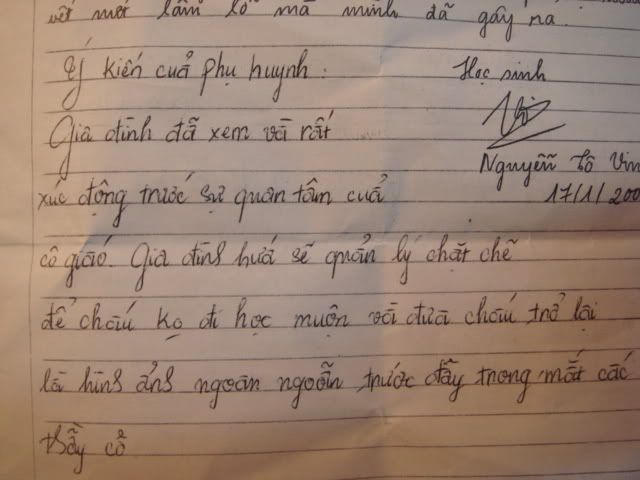 vết mọi lầm lỗ mà mình đã gây ra.
Ý kiến cuả phụ huynh: Học sinh
Gia đình đã xem và rất
Nguyễn Tô Vin
xúc động trước sự quan tâm cuả 17/1/200
cô giáo. Gia đình hứa sẽ quản lý chặt chẽ
để cháu ko đi học muộn và đưa cháu trở lại
là hình ảnh ngoan ngoãn trước đây trong mắt các
thầy cô